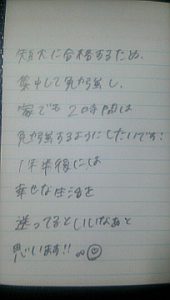 短大に合格するため、
集中して勉強し、
家でも2時間は
勉強するようにしたいです!
1年半後には
幸せな生活を
送ってるといいなぁと
思います!!